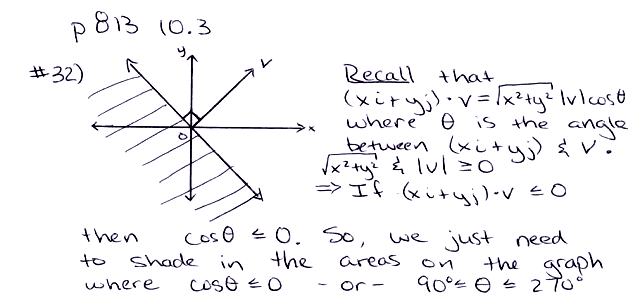 p 813 10.3
#32)
y
v
x
0
Recall that
(xi+yj)·v=√x²+y² |v|cosθ
where θ is the angle
between (xi+yj) & v.
√x²+y² & |v| ≥ 0
=> If (xi+yj)·v ≤ 0
then cosθ ≤ 0. So, we just need
to shade in the areas on the graph
where cosθ ≤ 0 - or - 90° ≤ θ ≤ 270°